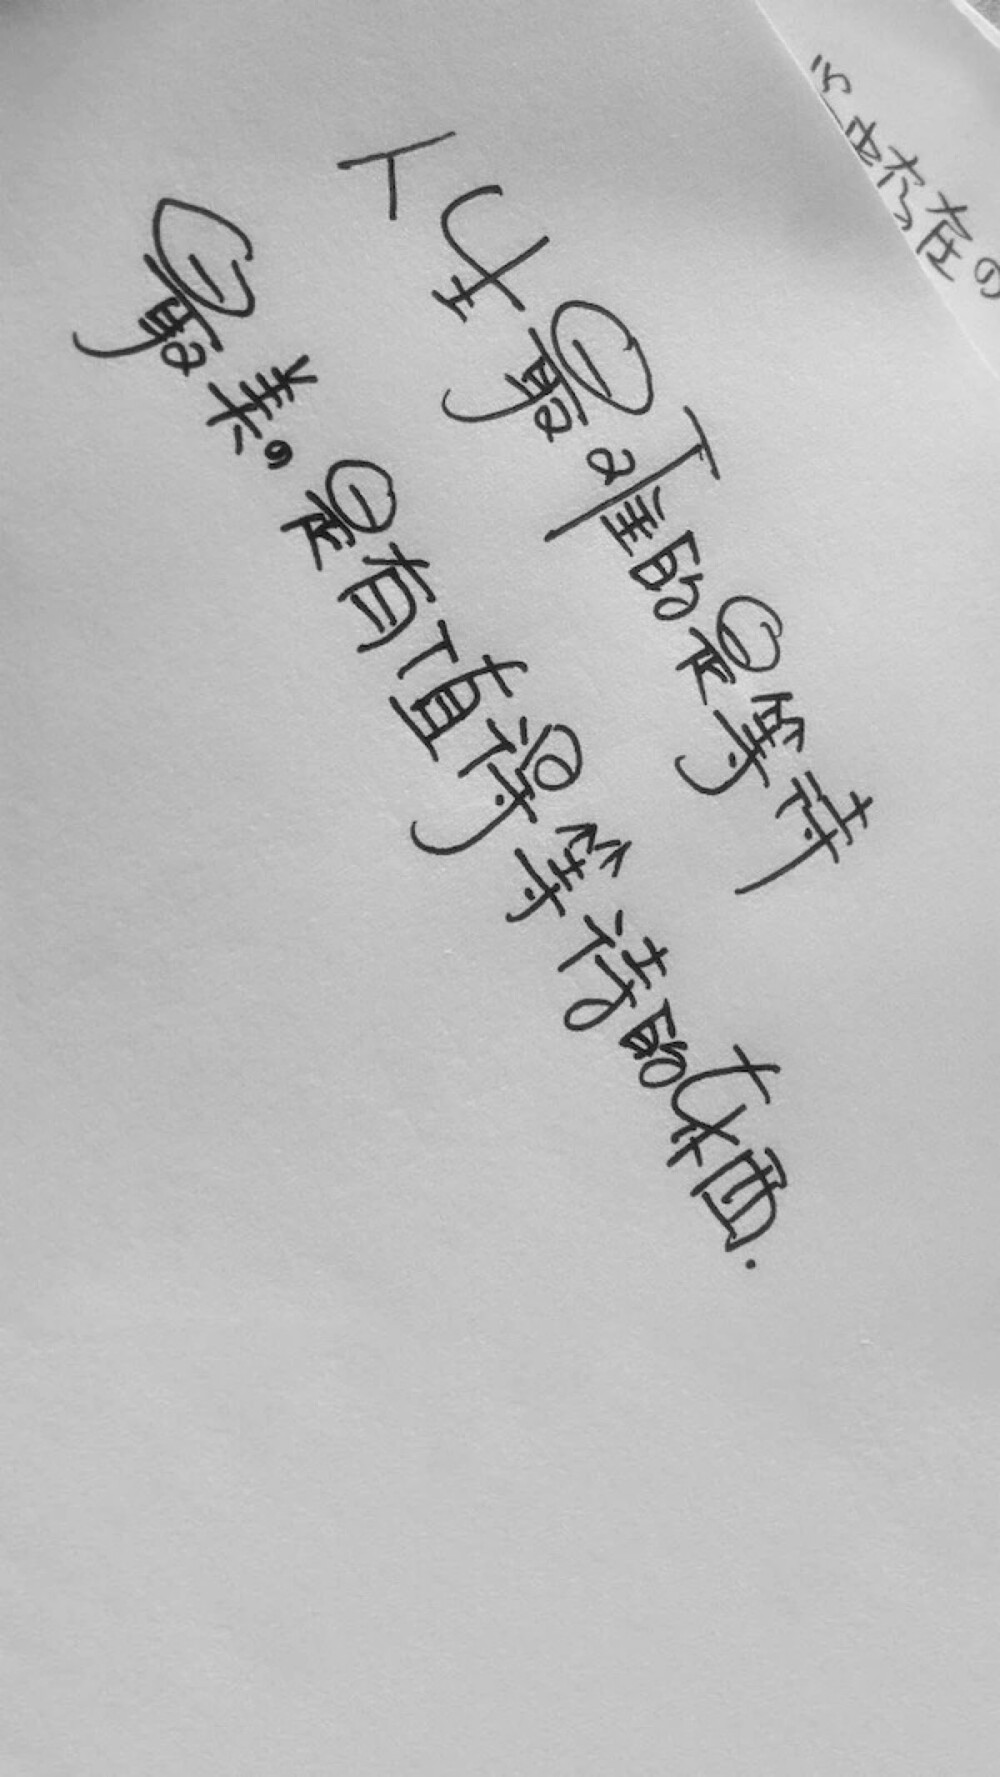 人生最难的是等待
最美,是有值得等待的东西.